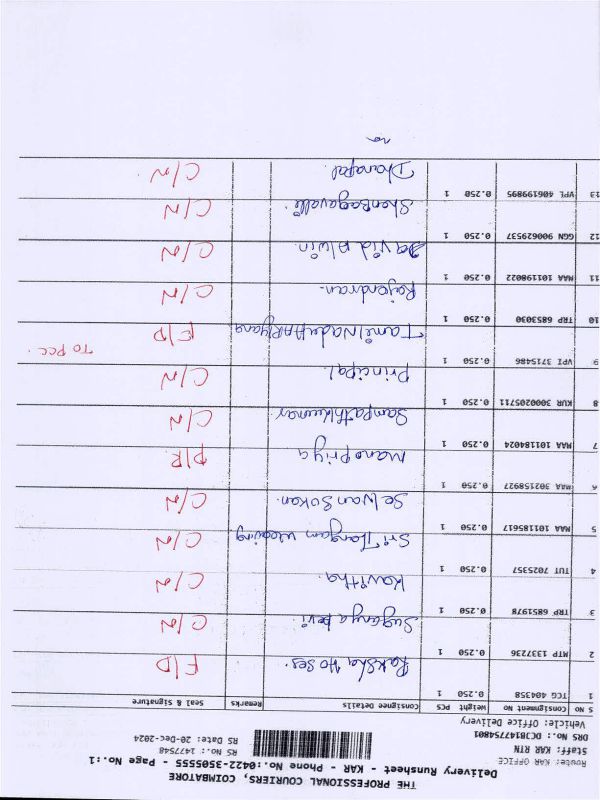 THE PROFESSIONAL COURIERS, COIMBATORE
Delivery Runsheet - KAR - Phone No.:0422-3505555 - Page No.:1
Route: KAR OFFICE
Staff: KAR RTN RS No.: 1477548
DRS No.: DCB1477754801 RS Date: 20-Dec-2024
Vehicle: Office Delivery
S NO Consignment No Weight PCS Consignee Details Remarks Seal & Signature
1 TCG 404358 0.250 1 Raksha Hoses. F/D
2 MTP 1337236 0.250 1 Suganya Devi C/N
3 TRP 6851978 0.250 1 Kavitha. C/N
4 TUT 7025357 0.250 1 Sri Tangam weaving C/N
5 MAA 101185617 0.250 1 Selvan Sokan. C/N
6 MAA 302158927 0.250 1 Mano Priya D/R
7 MAA 101184024 0.250 1 Sampathkumar C/N
8 KUR 3000205711 0.250 1 Principal. C/N
9 VPI 3715486 0.250 1 Tamil Nadu F/D To PCC.
10 TRP 6853030 0.250 1 Rajendran. C/N
11 MAA 101198022 0.250 1 David Alwin. C/N
12 GGN 900629537 0.250 1 Shenbagavalli. C/N
13 VPL 406199895 0.250 1 Dhanapal. C/N